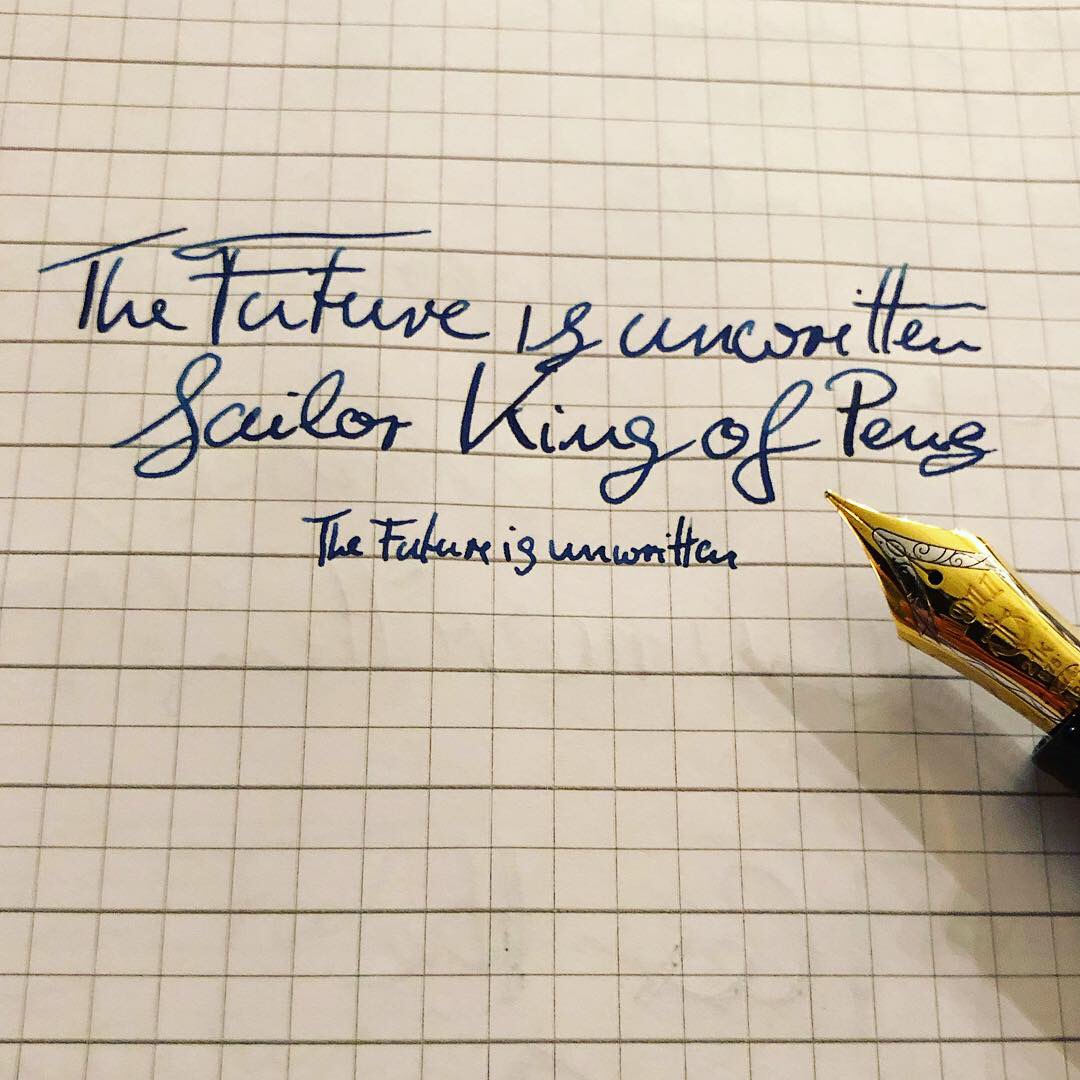 The Future is unwritten
Sailor King of Peng
The Future is unwritten